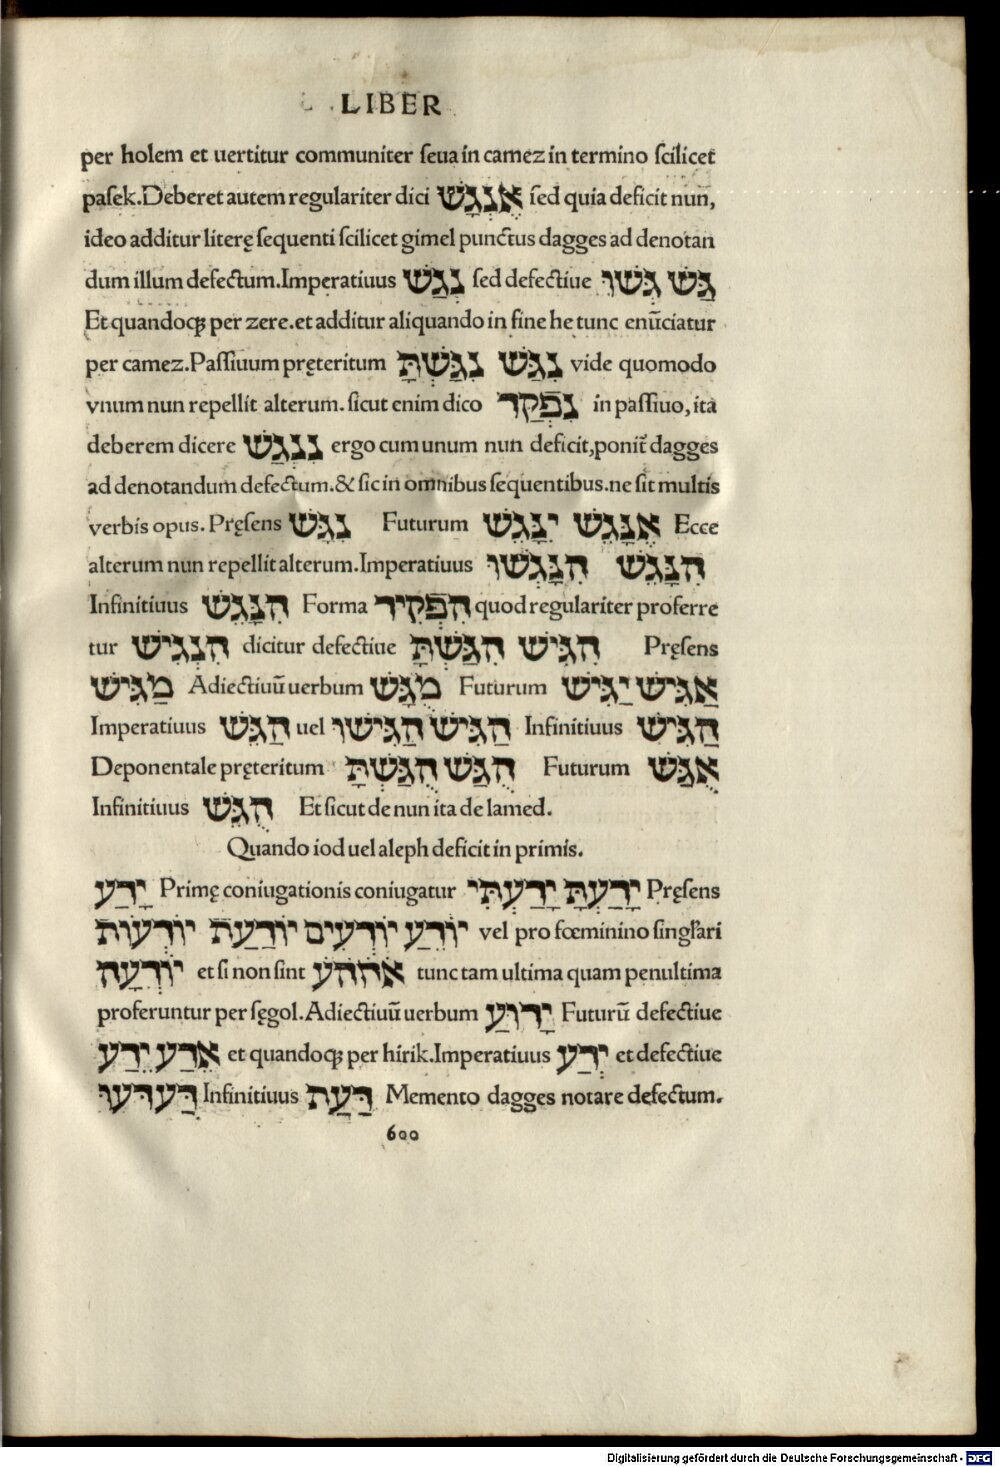 LIBER
per holem et uertitur communiter seua in camez in termino scilicet
pasek. Deberet autem regulariter dici אֶנְגָּשׁ sed quia deficit nun,
ideo additur literę sequenti scilicet gimel punctus dagges ad denotan
dum illum defectum. Imperatiuus נְגַשׁ sed defectiue גַּשׁ גְּשׁוּ
Et quandoq; per zere. et additur aliquando in fine he tunc enūciatur
per camez. Passiuum pręteritum נִגַּשׁ נִגַּשְׁתָּ vide quomodo
vnum nun repellit alterum. sicut enim dico נִפְקַד in passiuo, ita
deberem dicere נִנְגַּשׁ ergo cum unum nun deficit, ponit̄ dagges
ad denotandum defectum. & sic in omnibus sequentibus. ne sit multis
verbis opus. Pręsens נִגָּשׁ Futurum אֶנָּגֵשׁ יִנָּגֵשׁ Ecce
alterum nun repellit alterum. Imperatiuus הִנָּגֵשׁ הִנָּגְשׁוּ
Infinitiuus הִנָּגֵשׁ Forma הִפְקִיד quod regulariter proferre
tur הִנְגִּישׁ dicitur defectiue הִגִּישׁ הִגַּשְׁתָּ Pręsens
מַגִּישׁ Adiectiuū uerbum מֻגָּשׁ Futurum אַגִּישׁ יַגִּישׁ
Imperatiuus הַגֵּשׁ uel הַגִּישׁ הַגִּישׁוּ Infinitiuus הַגִּישׁ
Deponentale pręteritum הֻגַּשׁ הֻגַּשְׁתָּ Futurum אֻגַּשׁ
Infinitiuus הֻגֵּשׁ Et sicut de nun ita de lamed.
Quando iod uel aleph deficit in primis.
יָדַע Primę coniugationis coniugatur יָדַעְתָּ יָדַעְתִּי Pręsens
יוֹדֵעַ יוֹדְעִים יוֹדַעַת יוֹדְעוֹת vel pro fœminino singƚari
יוֹדְעָה et si non sint אההע tunc tam ultima quam penultima
proferuntur per sęgol. Adiectiuū uerbum יָדוּעַ Futurū defectiue
אֵדַע יֵדַע et quandoq; per hirik. Imperatiuus יְדַע et defectiue
דַּע דְּעוּ Infinitiuus דַּעַת Memento dagges notare defectum.
600
Digitalisierung gefördert durch die Deutsche Forschungsgemeinschaft - DFG